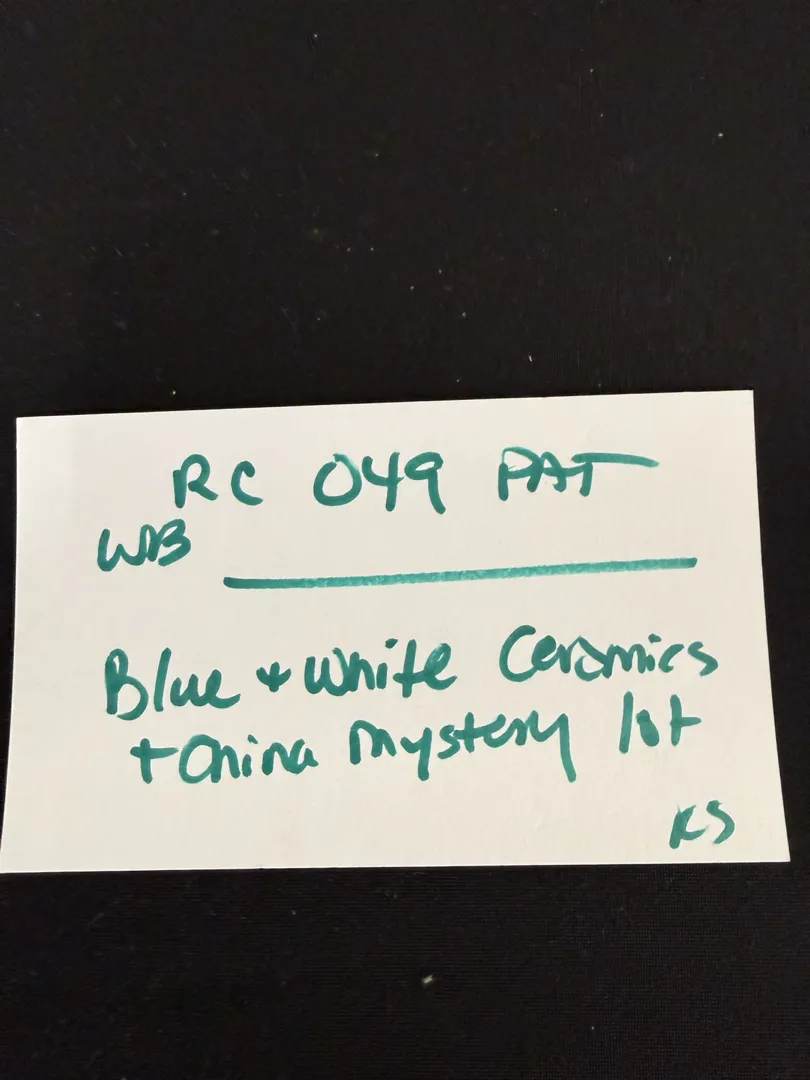 RC 049 PAT
WB
Blue + White Ceramics
+ China Mystery lot
KS